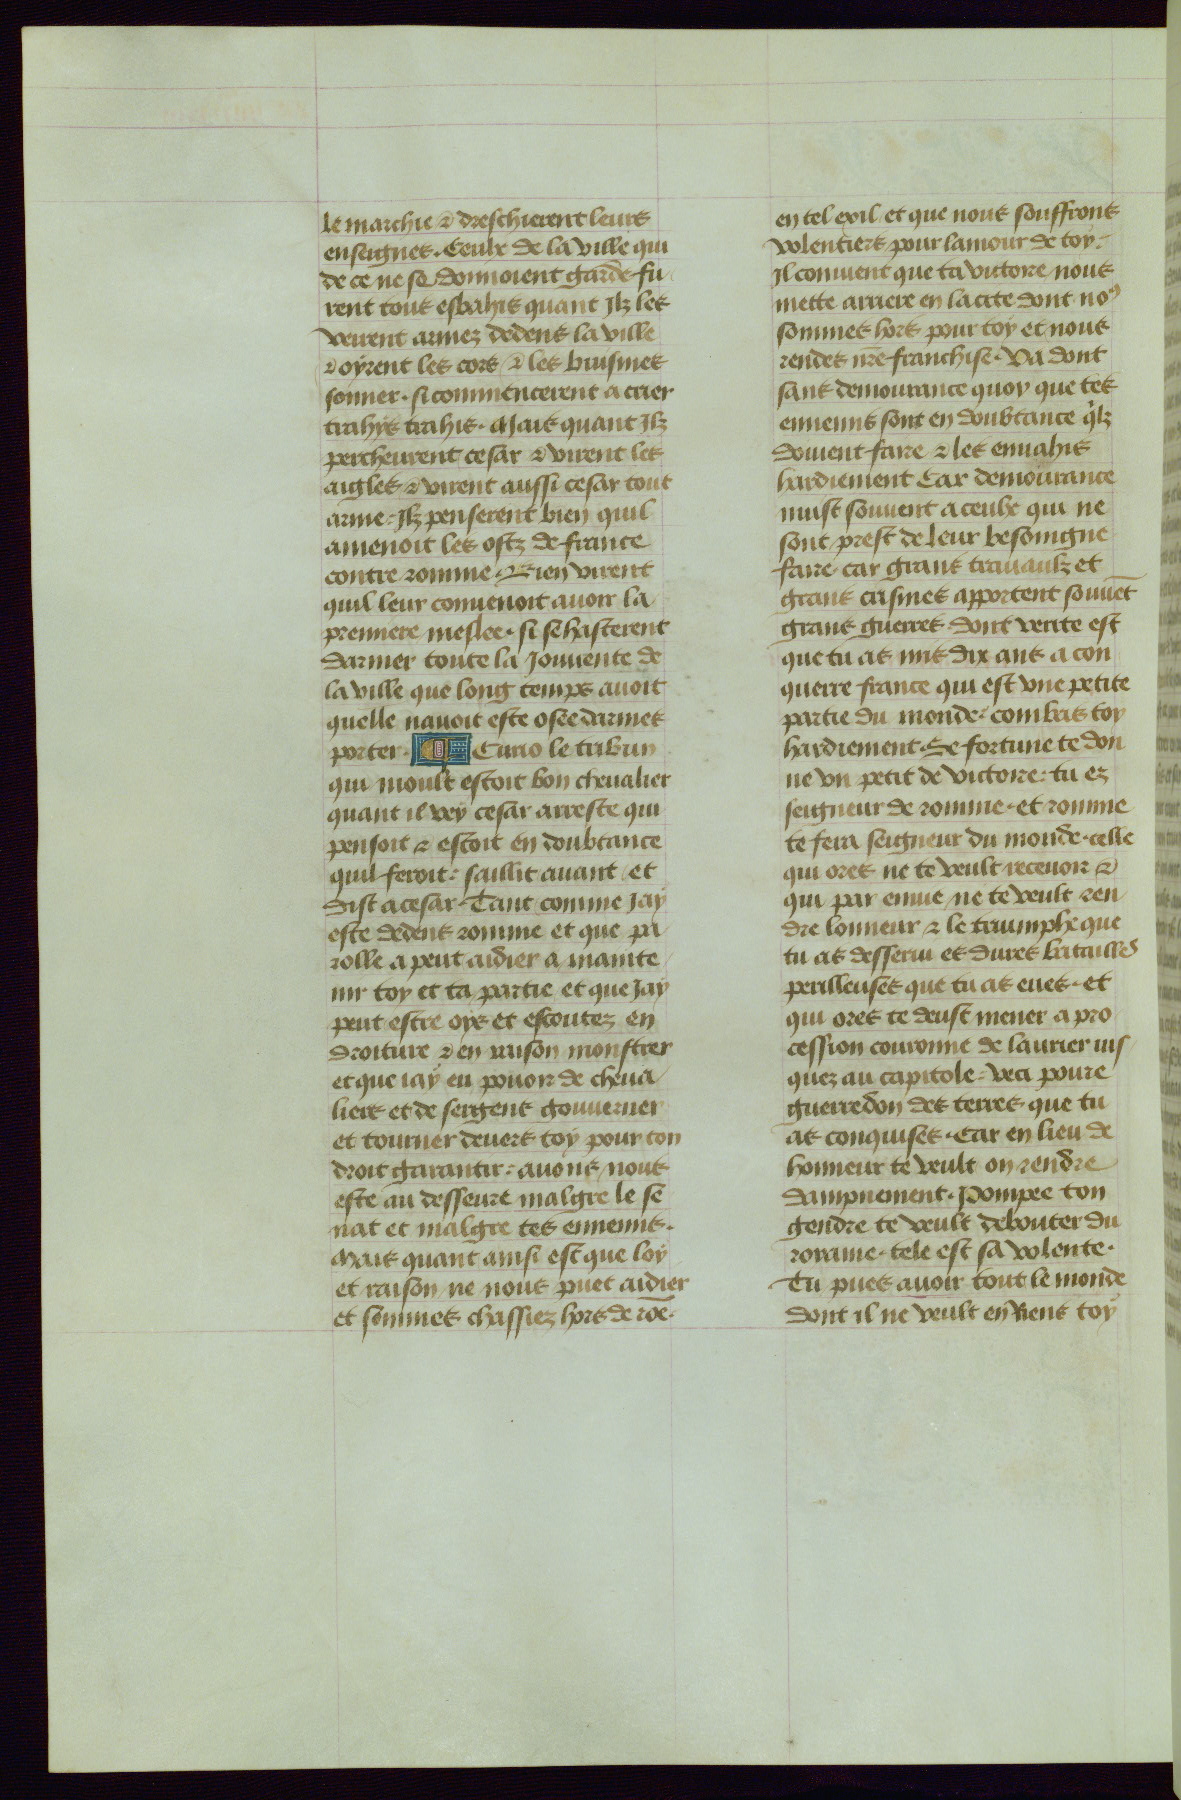 le marchie & dreschierent leurs
enseignes. Ceulx de la ville qui
de ce ne se donnoient garde fu
rent tous esbahis quant Ilz les
veirent armez dedens la ville
& oyrent les cors & les buisines
sonner. si commencerent a crier
trahys trahis. Mais quant Ilz
percheurent cesar & virent les
aigles & virent aussi cesar tout
arme: Ilz penserent bien quil
amenoit les ostz de france
contre romme. Bien virent
quil leur conuenoit auoir la
premiere meslee. si se hasterent
darmer toute la Jouuente de
la ville que long temps auoit
quelle nauoit este osee darmes
porter. Curio le tribun
qui moult estoit bon cheualier
quant il vey cesar arreste qui
pensoit & estoit en doubtance
quil feroit: saillit auant et
dist a cesar Tant comme Jay
este dedens romme et que pa
rolle a peut aidier a mainte
nir toy et ta partie et que Jay
peut estre oys et escoutez en
droiture & en raison monstrer
et que iay eu pouoir de cheua
liers et de sergens gouuerner
et tourner deuers toy pour ton
droit garantir: auons nous
este au desseure malgre le se
nat et malgre tes ennemis.
Mais quant ainsi est que loy
et raison ne nous puet aidier
et sommes chassiez hors de rōe.
en tel exil et que nous souffrons
volentiers pour lamour de toy:
Il conuient que ta victoire nous
mette arriere en la cite dont noꝰ
sommes hors pour toy et nous
rendes nr̄e franchise. Va dont
sans demourance quoy que tes
ennemis sont en doubtance q̄lz
doiuent faire & les enuahis
hardiement Car demourance
nuist souuent a ceulx qui ne
sont prest de leur besoingne
faire. car grans trauaulz et
grans crismes apportent souuēt
grans guerres. dont verite est
que tu as mis dix ans a con
querre france qui est vne petite
partie du monde. combas toy
hardiement. Se fortune te don
ne vn petit de victoire: tu ez
seigneur de romme. et romme
te fera seigneur du monde. celle
qui ores ne te veult receuoir &
qui par enuie ne te veult ren
dre lonneur & le triumphe que
tu as desserui es dures batailles
perilleuses que tu as eues. et
qui ores te deust mener a pro
cession couronne de laurier ius
quez au capitole: veci poure
guerredon des terres que tu
as conquises. Car en lieu de
honneur te veult on rendre
dampnement. Pompee ton
gendre te veult debouter du
roiaume. tele est sa volente.
Tu pues auoir tout le monde
dont il ne veult en riens toy